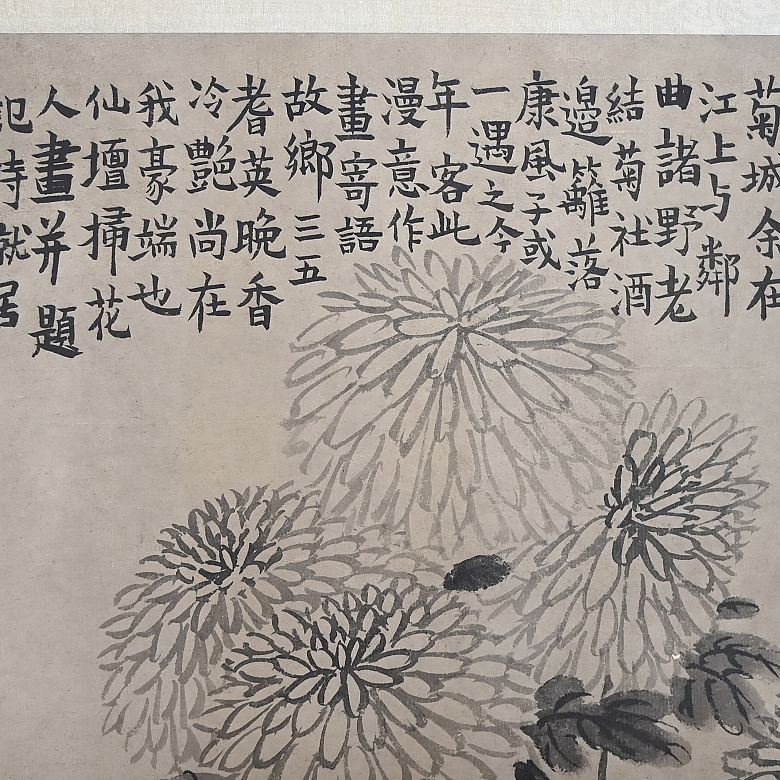 菊城余在
江上与鄰
曲諸野老
結菊社酒
邉籬落
康風子或
一遇之今
年客此
漫意作
畫寄語
故鄉三五
耆英晚香
冷艷尚在
我豪端也
仙壇掃花
人畫并題
記時就居